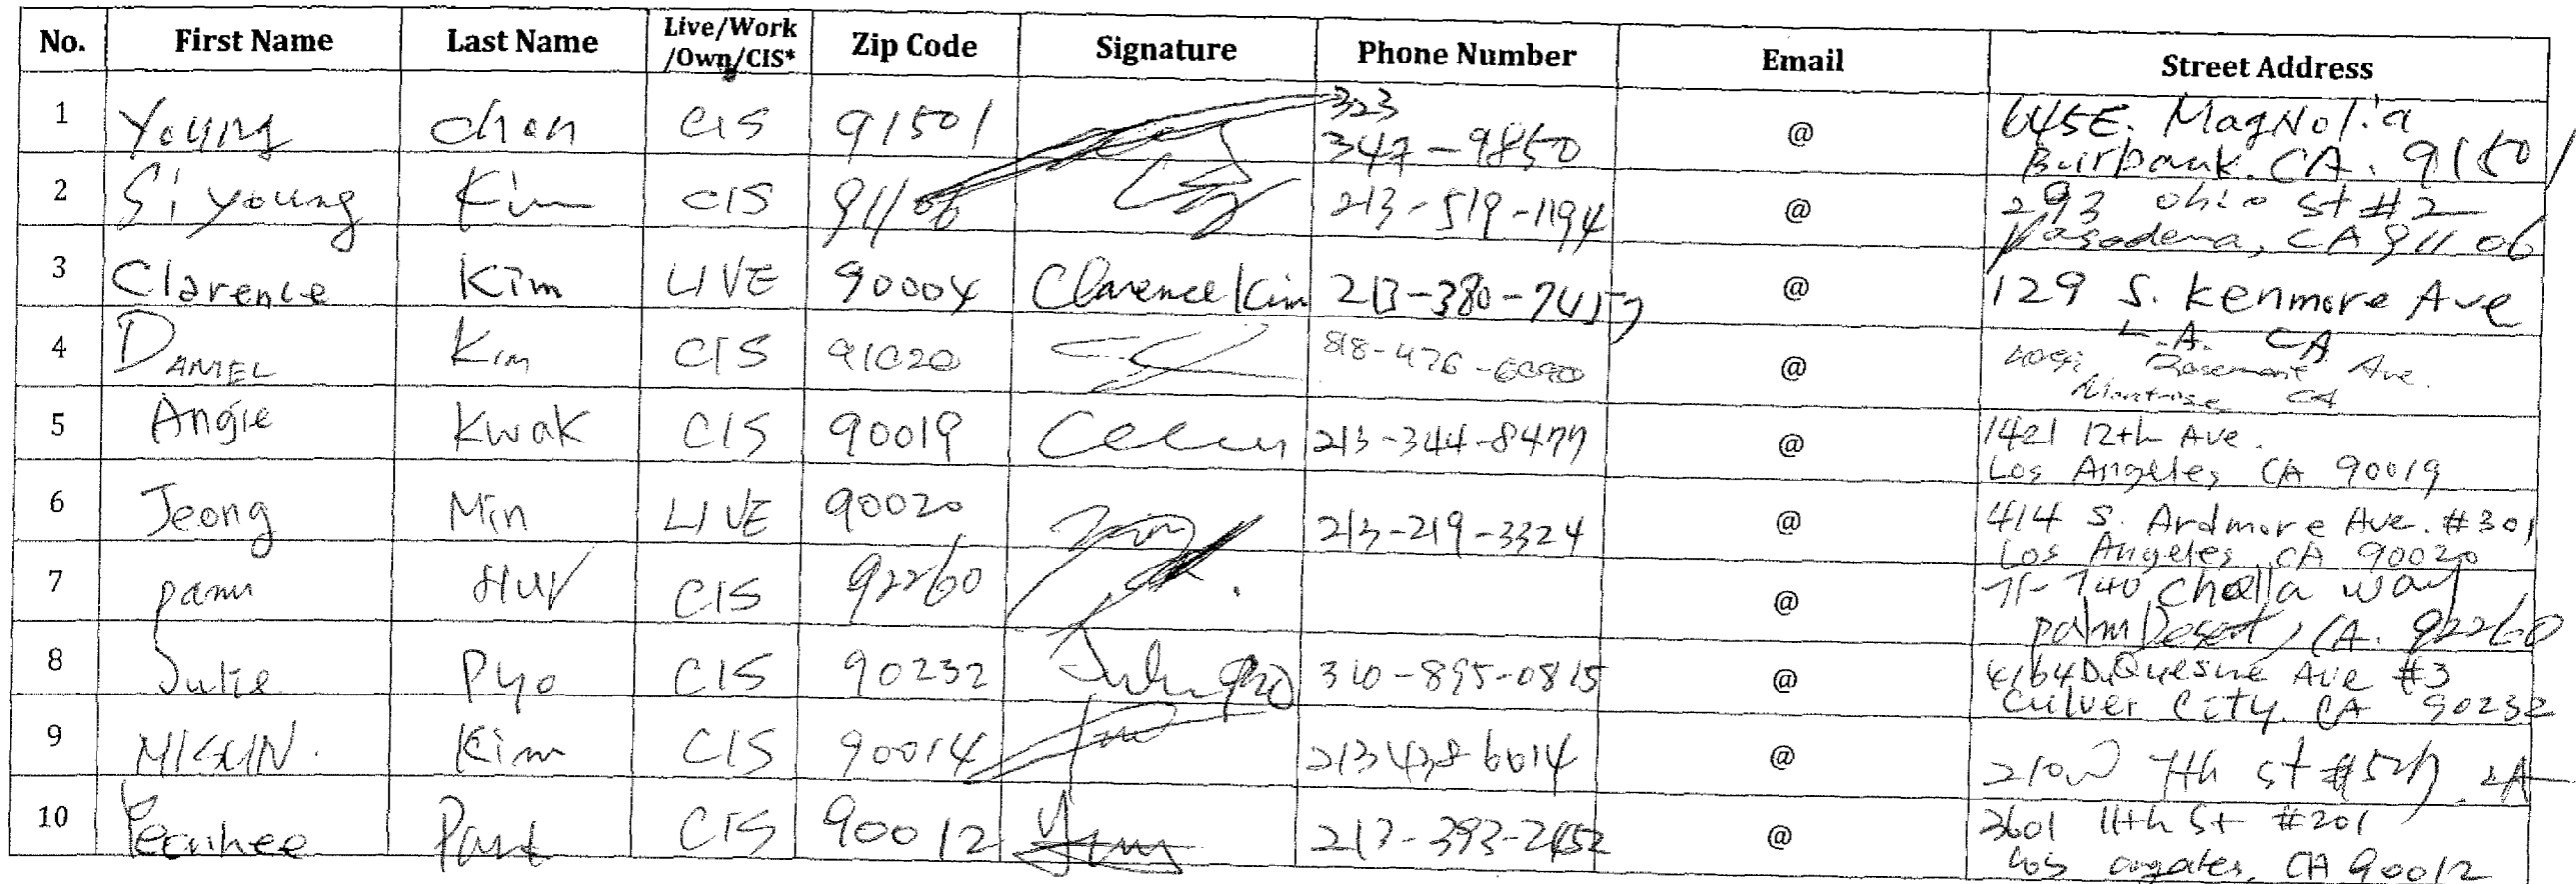 No. First Name Last Name Live/Work /Own/CIS* Zip Code Signature Phone Number Email Street Address
1 Young chon CIS 91501 323 347-9850 @ 645E. MagNolia Burbank. CA. 91501
2 Si young Kim CIS 91106 213-519-1194 @ 293 ohio st #2 Pasadena, CA 91106
3 Clarence Kim LIVE 90004 Clarence Kim 213-380-7457 @ 129 S. Kenmore Ave L.A. CA
4 DANIEL Kim CIS 91020 818-476-6090 @ Ave. Montrose CA
5 Angie Kwak CIS 90019 213-344-8477 @ 1421 12th Ave. Los Angeles, CA 90019
6 Jeong Min LIVE 90020 213-219-3324 @ 414 S. Ardmore Ave. #301 Los Angeles, CA 90020
7 Hur CIS 92260 @ 740 way palm Desert, CA. 92260
8 Julie Pyo CIS 90232 310-895-0815 @ Ave #3 Culver City. CA 90232
9 MISUN. Kim CIS 90014 213 438 6014 @ 210 W 7th st
10 CIS 90012 213-393-2452 @ 3601 11th St #201 Los angales, CA 90012